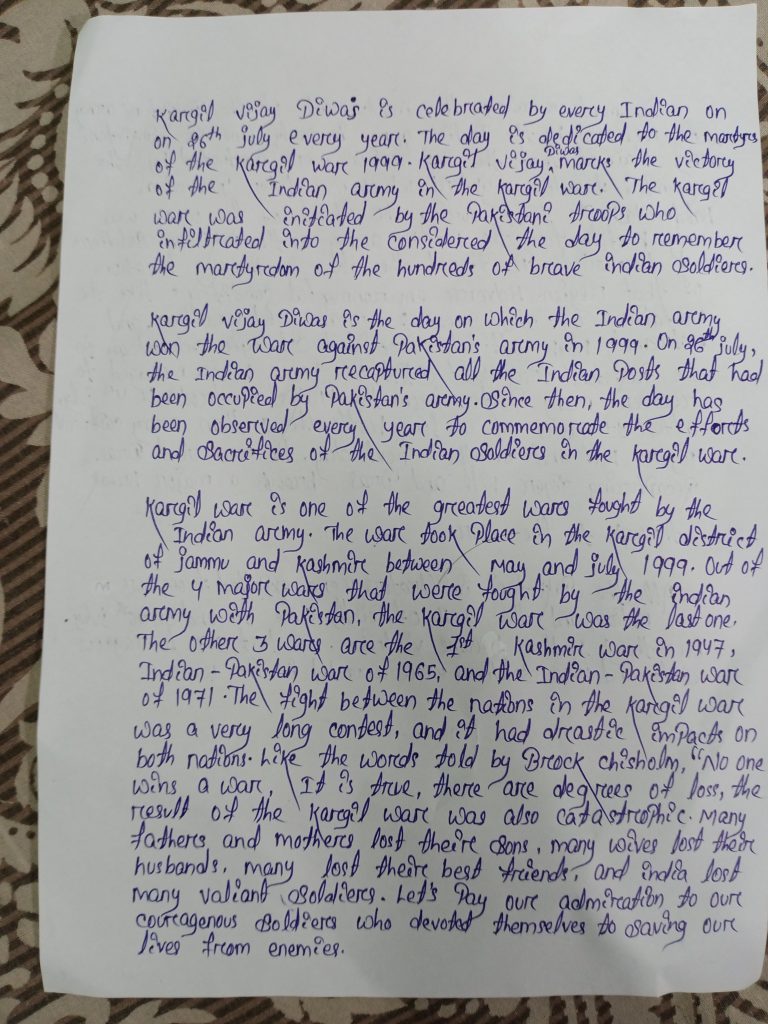 Kargil vijay Diwas is celebrated by every Indian on
on 26th july every year. The day is dedicated to the martyrs
of the Kargil war 1999. Kargil vijay Diwas marks the victory
of the Indian army in the Kargil war. The Kargil
war was initiated by the Pakistani troops who
infiltrated into the considered the day to remember
the martyrdom of the hundreds of brave indian soldiers.
Kargil vijay Diwas is the day on which the Indian army
won the war against Pakistan's army in 1999. On 26th july,
the Indian army recaptured all the Indian Posts that had
been occupied by Pakistan's army. Since then, the day has
been observed every year to commemorate the efforts
and sacrifices of the Indian soldiers in the Kargil war.
Kargil war is one of the greatest wars fought by the
Indian army. The war took Place in the Kargil district
of jammu and Kashmir between May and july 1999. Out of
the 4 major wars that were fought by the indian
army with Pakistan, the Kargil war was the last one.
The other 3 wars are the 1st Kashmir war in 1947,
Indian-Pakistan war of 1965, and the Indian-Pakistan war
of 1971. The fight between the nations in the Kargil war
was a very long contest, and it had drastic impacts on
both nations. Like the words told by Brock chisholm, "No one
wins a war, It is true, there are degrees of loss, the
result of the Kargil war was also catastrophic. Many
fathers and mothers lost their sons, many wives lost their
husbands, many lost their best friends, and india lost
many valiant soldiers. Let's Pay our admiration to our
couragenous soldiers who devoted themselves to saving our
lives from enemies.